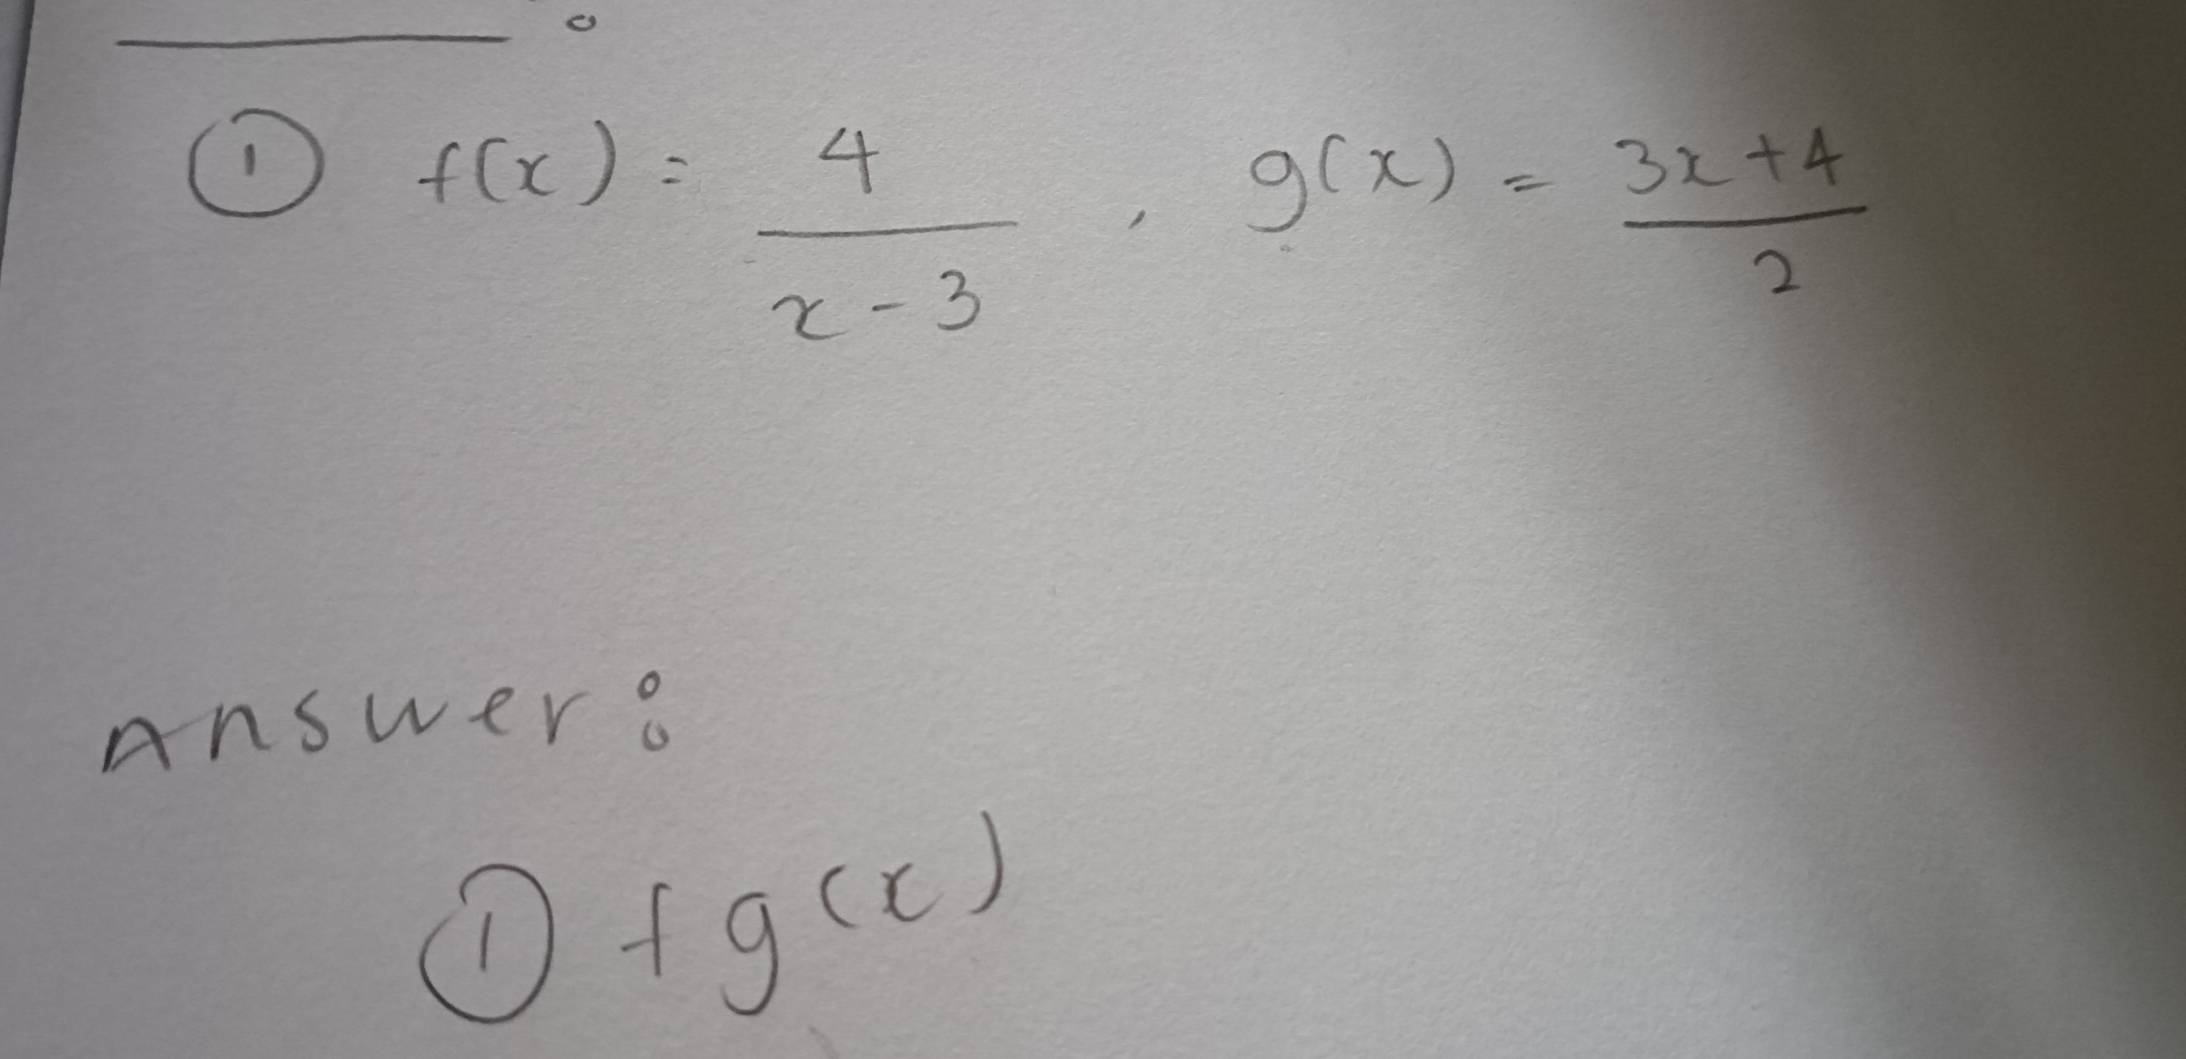 ① f(x) = 4 / x - 3 , g(x) = 3x + 4 / 2
Answer:
① fg(x)